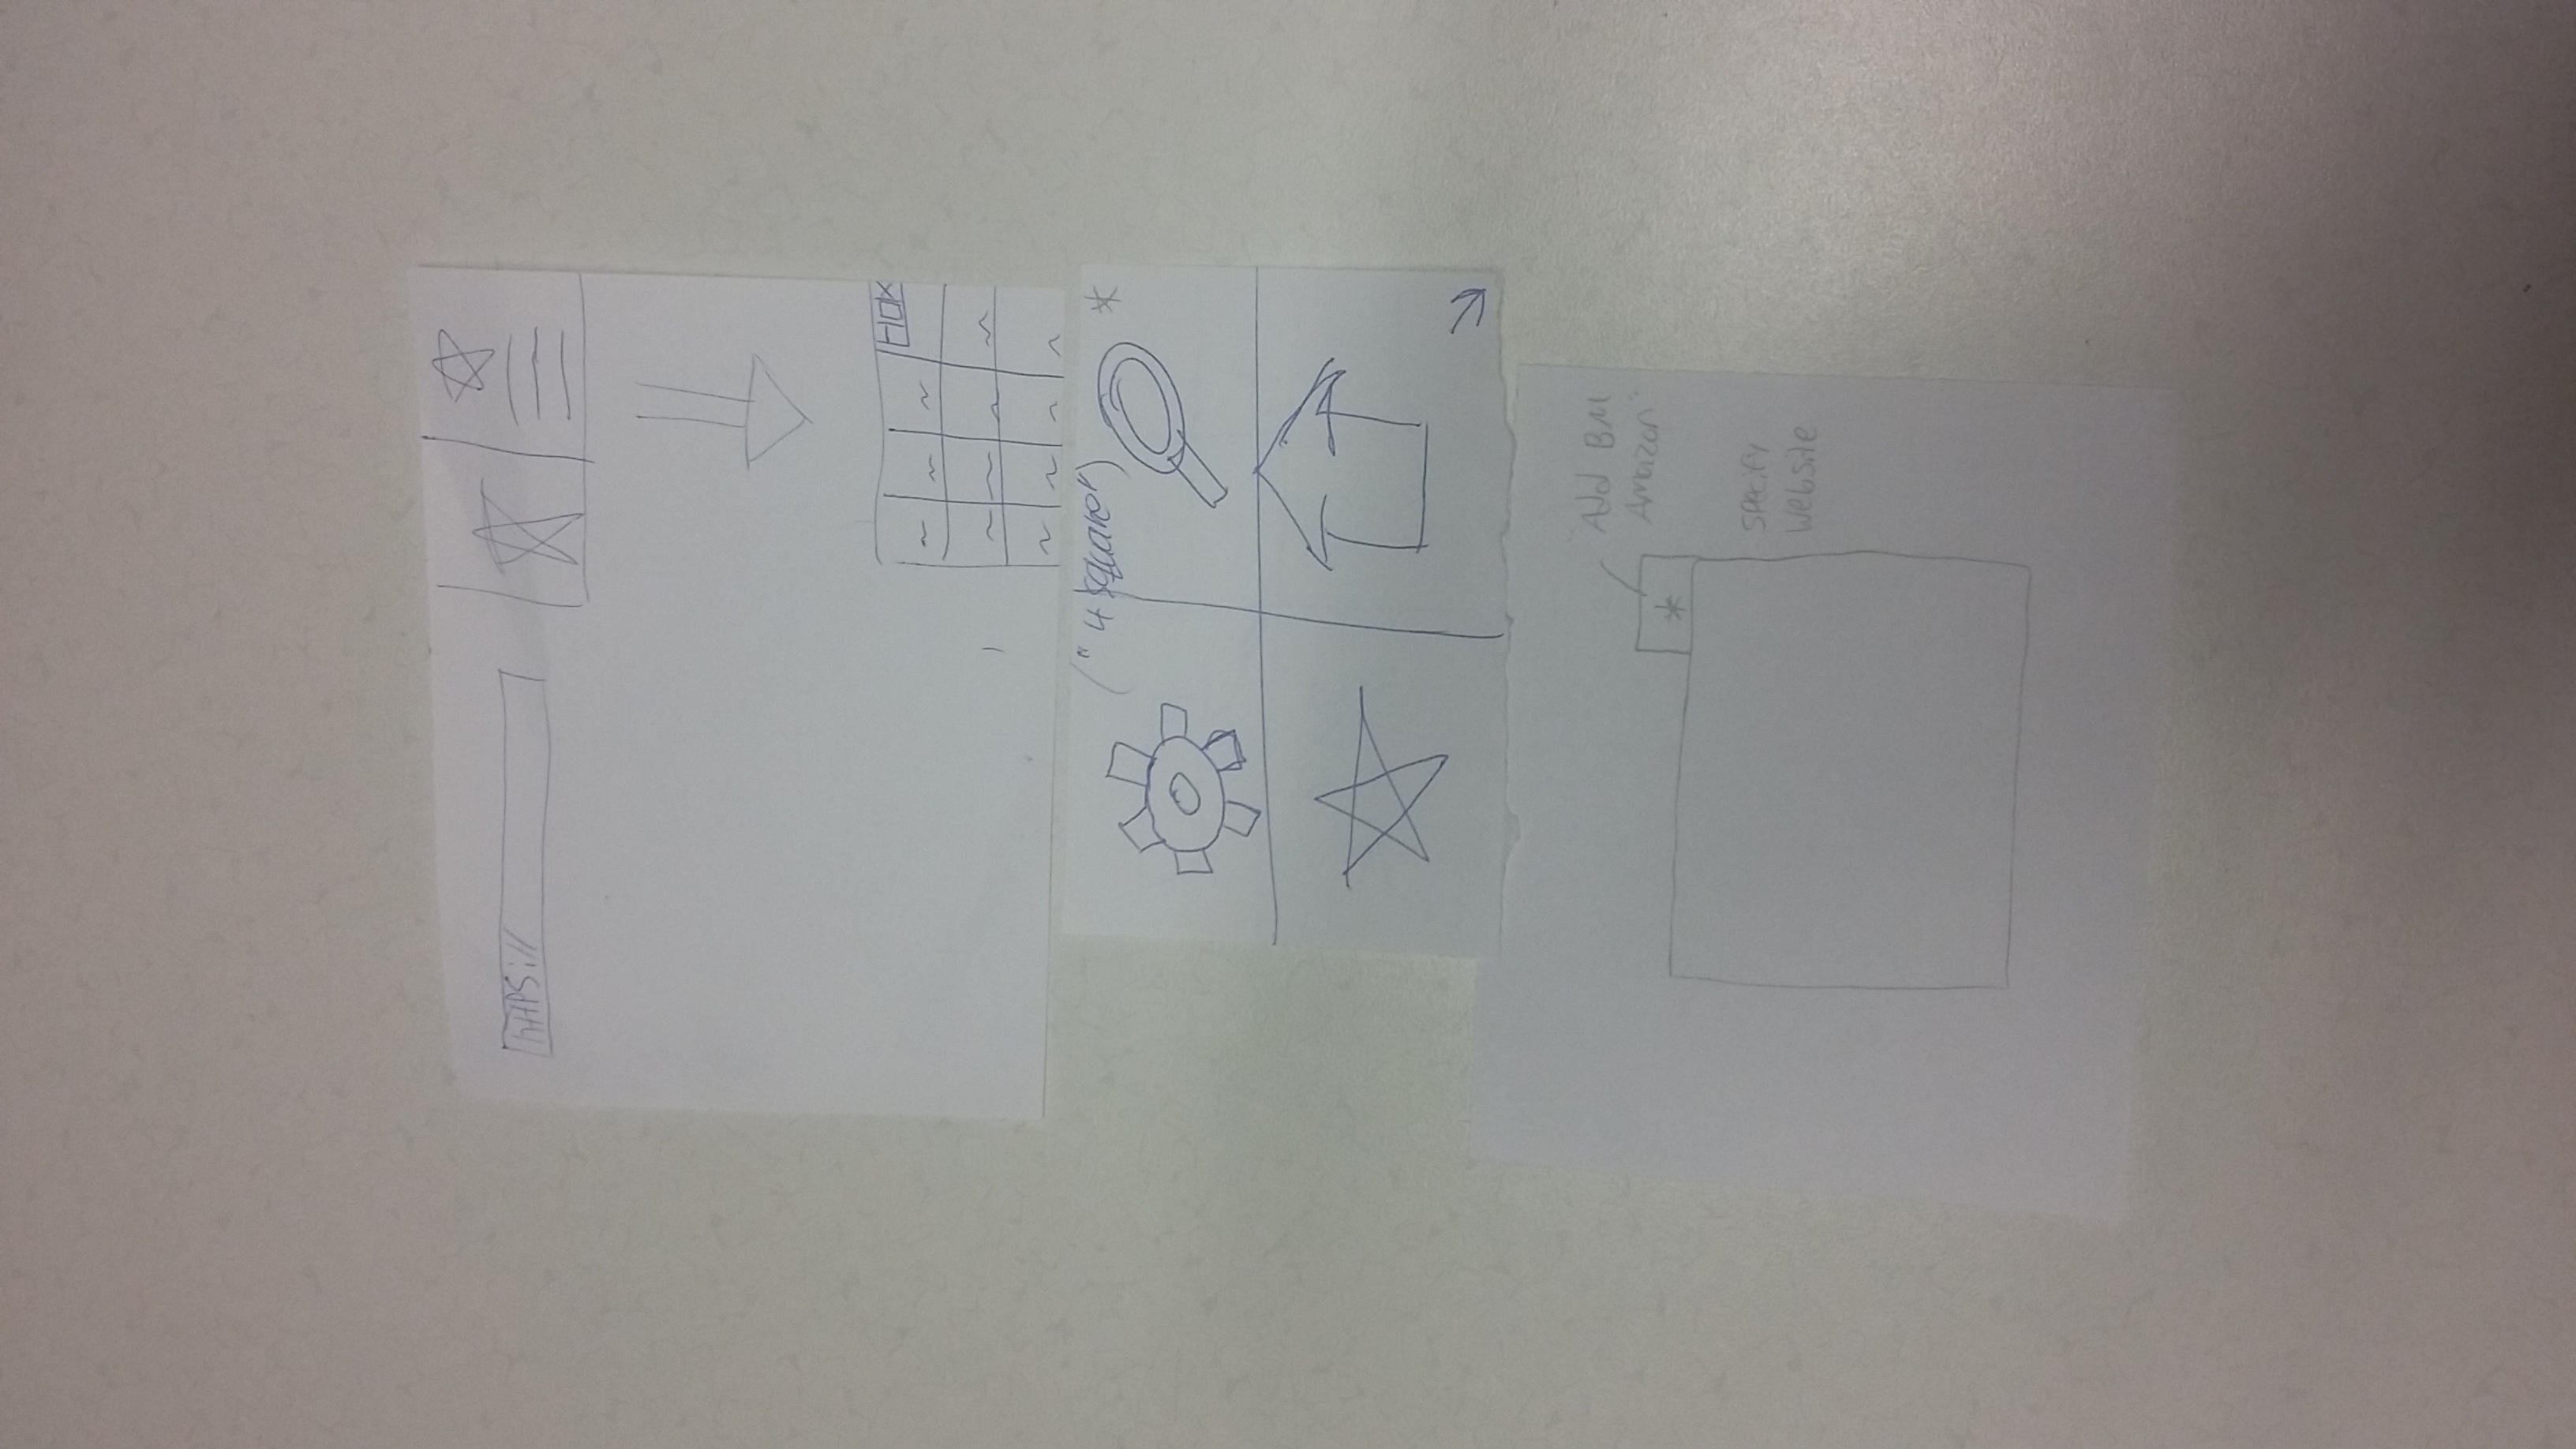 https://
("4 square")
"Add BM
Amazon"
*
*
Specify
Website